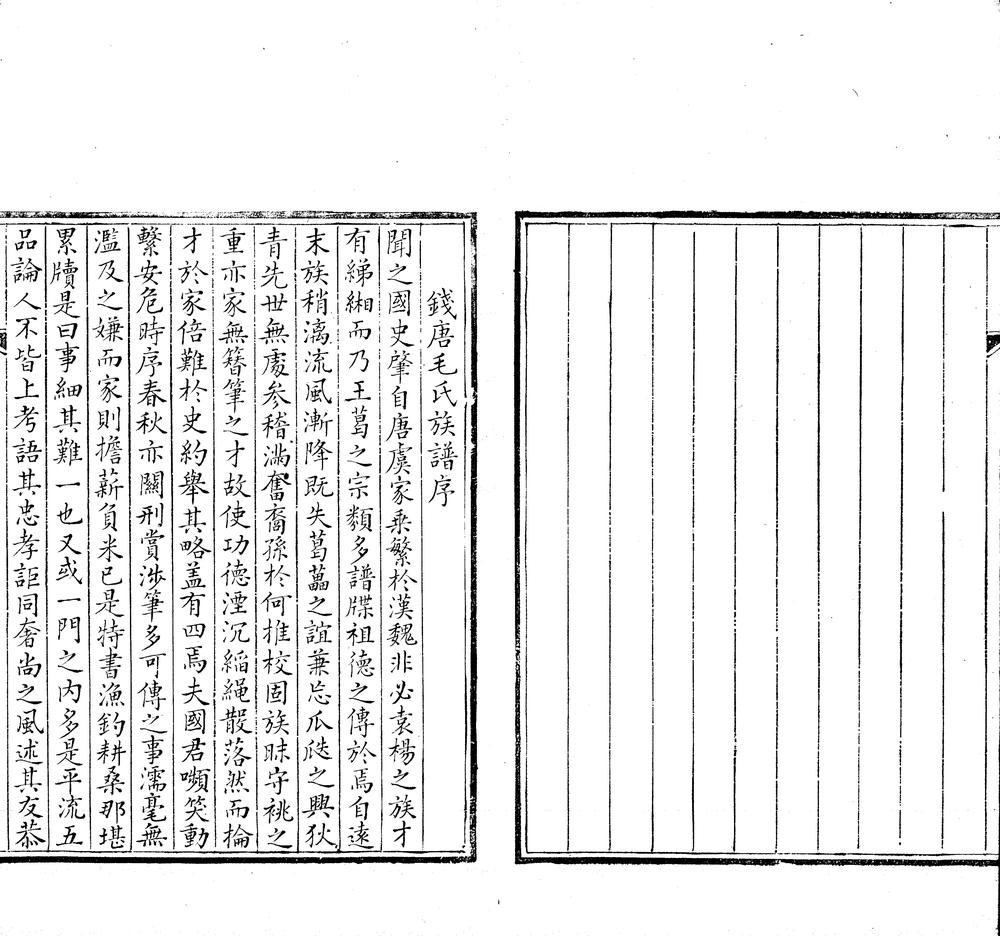 錢唐毛氏族譜序
聞之國史肇自唐虞家乗繁於漢魏非必袁楊之族才
有綈緗而乃王葛之宗纇多譜牒祖德之傳於焉自遠
末族稍漓流風漸降既失葛藟之誼兼忘瓜瓞之興狄
青先世無處参稽滿奮裔孫於何推校固族昧守祧之
重亦家無簪筆之才故使功德湮沉緼繩散落然而掄
才於家倍難於史約舉其略盖有四焉夫國君嚬笑動
繫安危時序春秋亦關刑賞涉筆多可傳之事濡毫無
濫及之嫌而家則擔薪負米已是特書漁釣耕桑那堪
累牘是曰事細其難一也又或一門之内多是平流五
品論人不皆上考語其忠孝詎同奢尚之風述其友恭